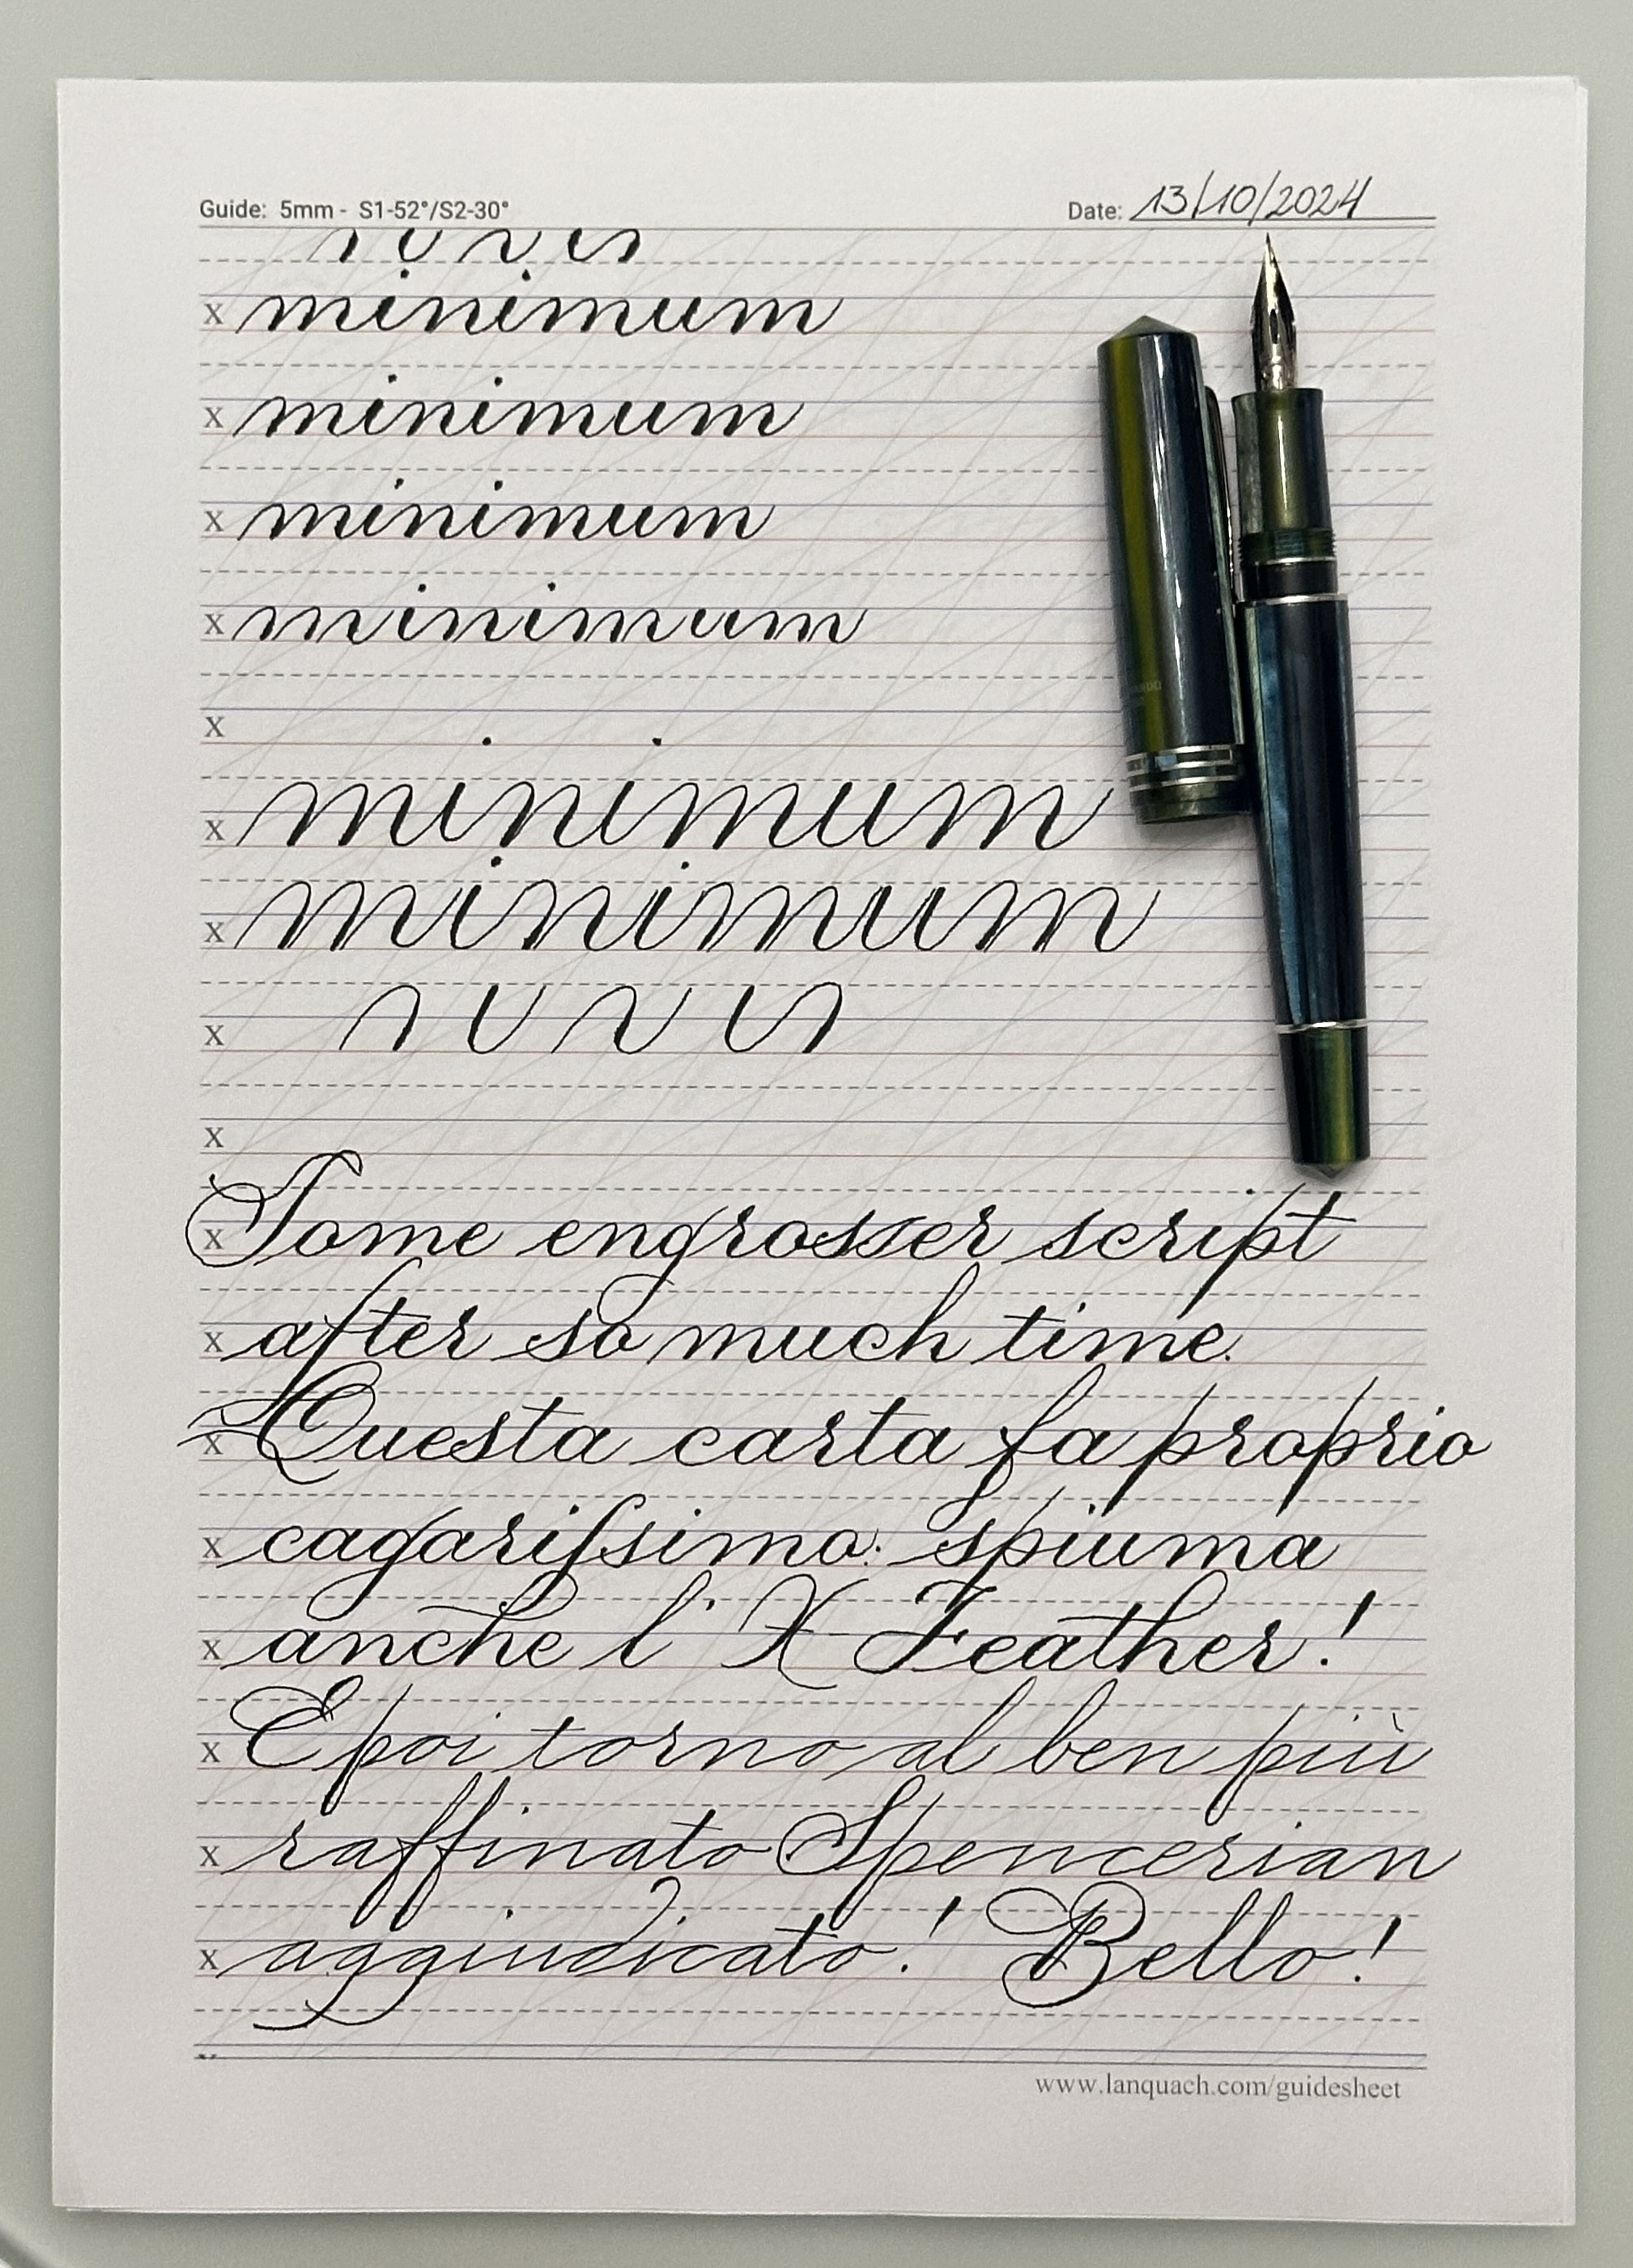 Guide: 5mm - S1-52°/S2-30°
Date: 13/10/2024
x minimum
x minimum
x minimum
x minimum
x
x minimum
x minimum
x
x
x Some engrosser script
x after so much time.
x Questa carta fa proprio
x cagarissimo: spiuma
x anche l'X Feather!
x E poi torno al ben più
x raffinato Spencerian
x aggiudicato! Bello!
www.lanquach.com/guidesheet